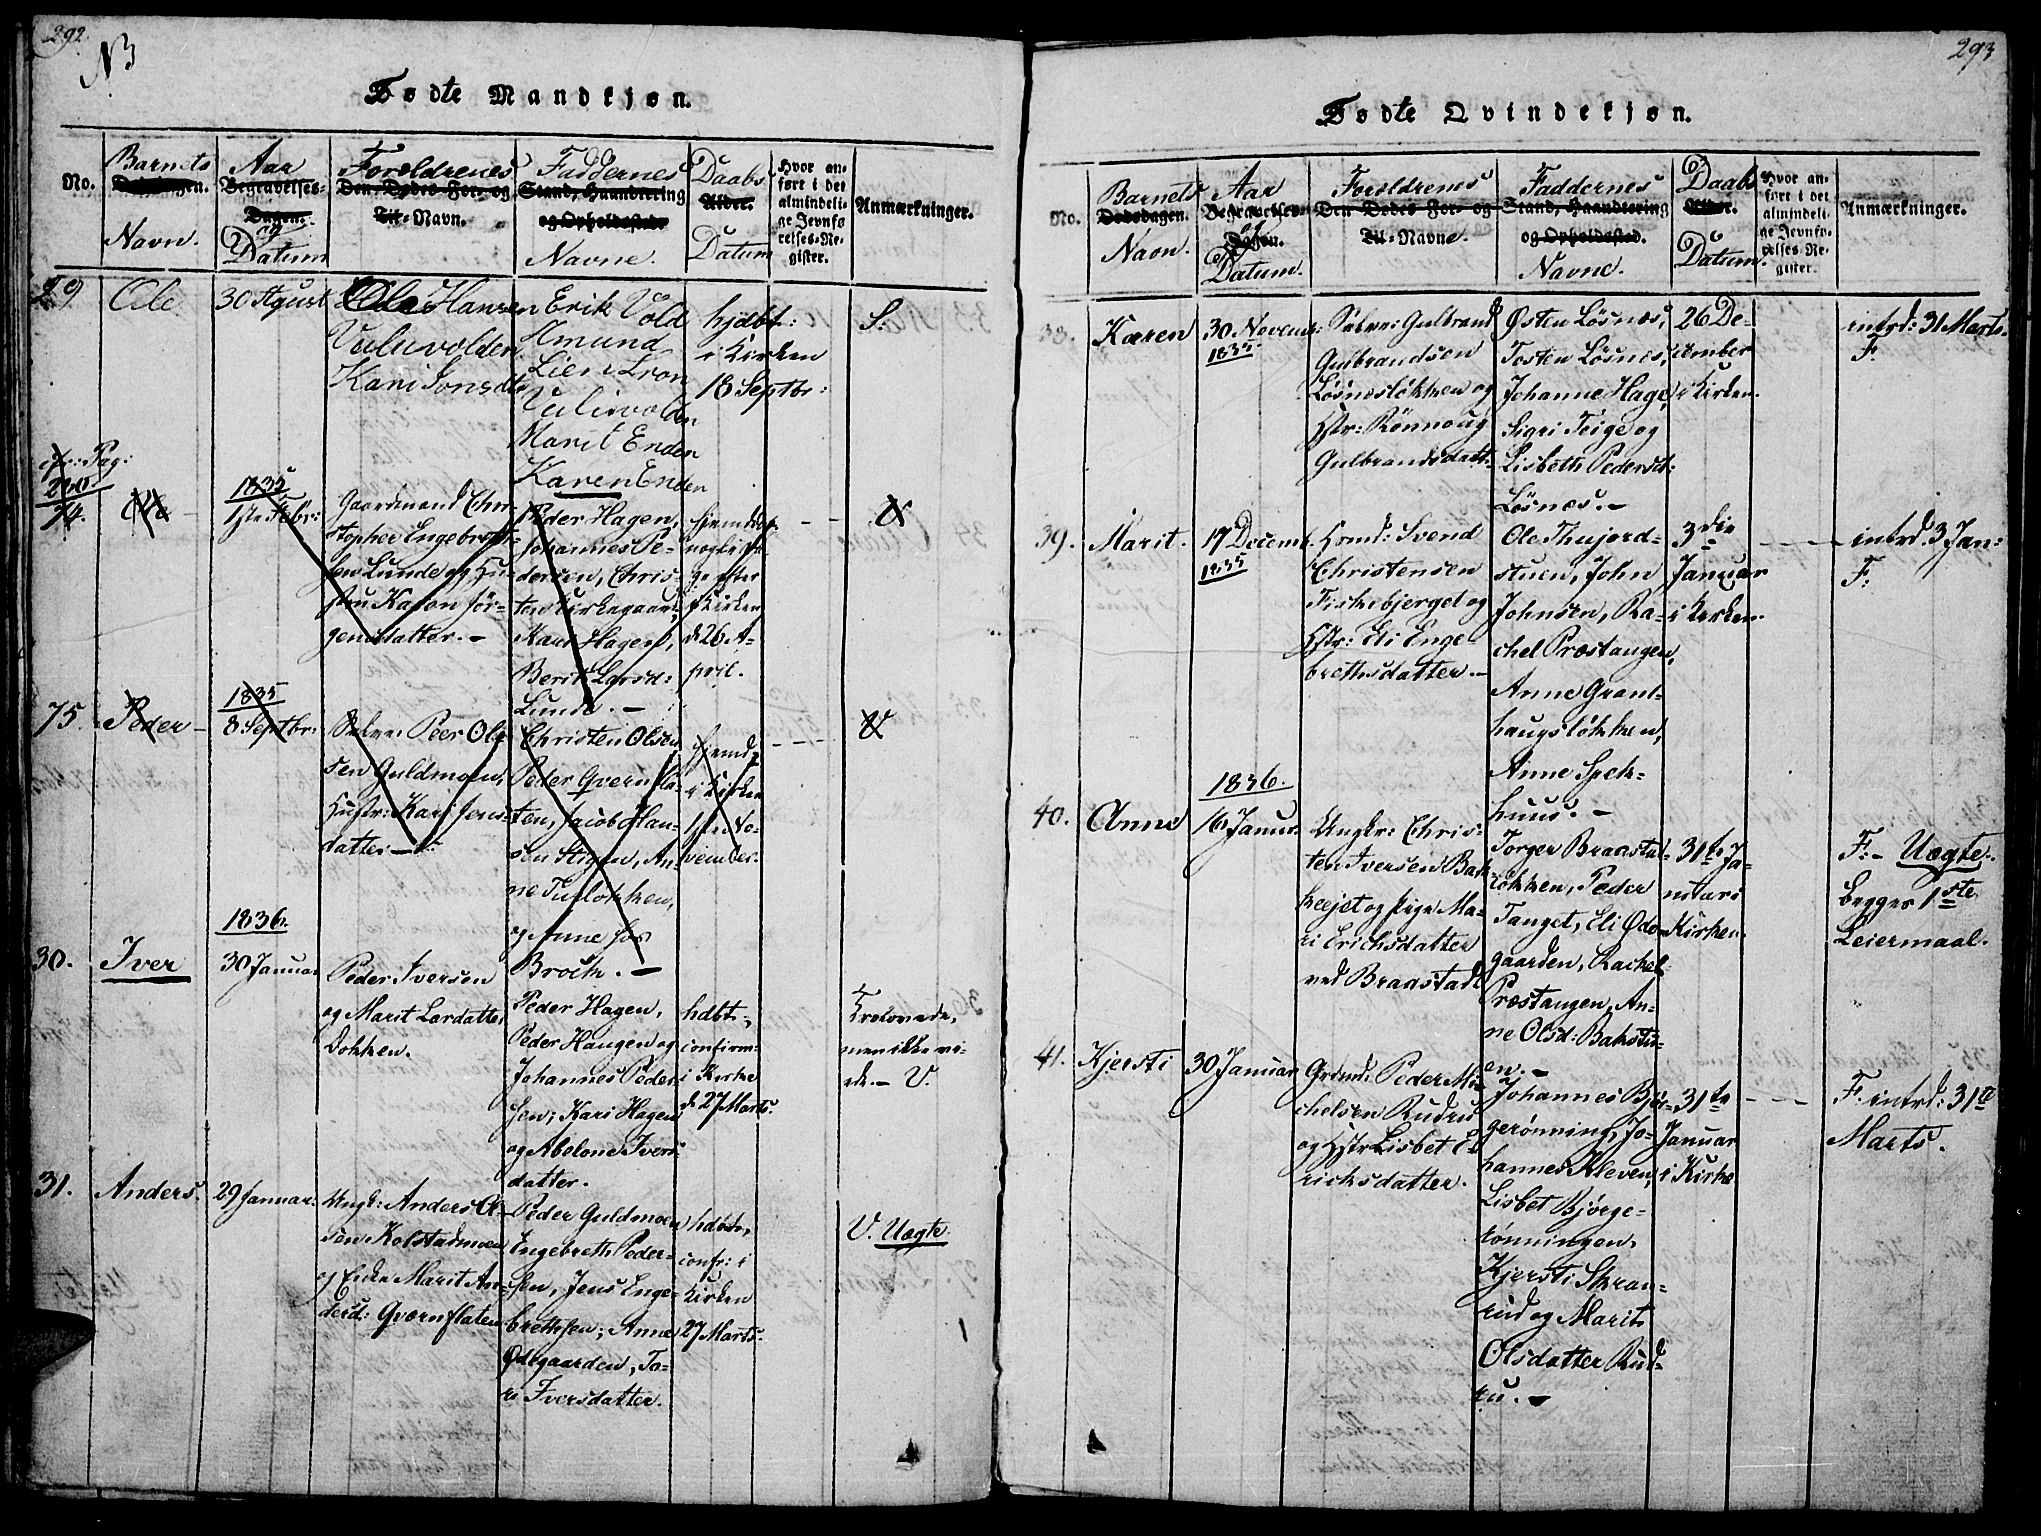 292.
Fødte Mandkjøn.
No.
Barnets
Navn.
Aar
Begravelses-
Dagen.
og
Datum
Foreldrenes
Den Dødes For- og
Til-Navn.
Faddernes
Stand, Haandtering
og Opholdssted
Navne.
Daabs
Alder.
Datum
Hvor an-
ført i det
almindeli-
ge Jevnfø
relses-Re-
gister.
Anmærkninger.
29
Ole
30 Agust
Ole Hansen
Kari Jonsdtr
Erik Vold
Amund
Lien Tron
Marit Enden
Karen Enden
hjdbt:
i Kirken
18 Septbr:
S.
cfr: Pag:
290
74.
Ole
1835
1ste Febr:
Gaardmand Chri-
stopher Engebret-
sen Lunde og Hu-
stru Karen Jör-
gensdatter. —
Peder Hagen,
Johannes Pe-
dersen, Chris-
ten Kirkegaard,
Kari Hagen,
Berit Larsd:
Lunde. —
Kirken
d 26 A-
pril.
V
75.
Peder
1835
8 Septbr:
Selve: Peer Ol-
sen Guldmoen,
Hustr: Kari Jens-
datter —
Christen Olsen
Peder Qvernfla-
ten, Jacob Han-
sen Stigen, An-
ne Tuelökken,
og Anne hos
Broch. —
hjemd:
i Kirken
1ste No-
vember.
V
30.
Iver
1836.
30 Januar
Peder Iversen
og Marit Larsdatter
Dokken.
Peder Hagen,
Peder Haugen og
Johannes Peder-
sen; Kari Hagen
og Abelone Ivers-
datter.
hdbt:,
confirm:
i Kirke
d 27 Marts.
Trolovede,
men ikke vi-
ede. — V.
31.
Anders.
29 Januar.
Ungk: Anders Ol-
sen Kolstadmoen
og Enke Marit An-
dersd: Qvernflaten
Peder Guldmoen
Engebreth Peder-
sen, Jens Enge-
brethsen; Anne
Ødegaarden, To-
re Iversdatter.
hdöbt,
confr: i
Kirken
27 Marts.
V. Uægte.
293
Fødte Qvindekjøn.
No.
Barnets
Dødsdagen.
Navn.
Aar
Begravelses-
Dagen.
og
Datum.
Foreldrenes
Den Dødes For- og
Til-Navne.
Faddernes
Stand, Haandtering
og Opholdssted.
Navne.
Daabs
Alder.
Datum.
Hvor an-
ført i det
almindeli-
ge Jevnfø-
relses-Re-
gister.
Anmærkninger.
38.
Karen
30 Novemb:
1835
Selve: Gulbrand
Gulbrandsen
Lösneslökken og
Hstr: Rönnoug
Gulbrandsdatt:
Østen Lösnes,
Tosten Lösnes,
Johanne Hage,
Sigri Teige og
Lisbeth Pedersd:
Lösnes. —
26 De-
cember
i Kirken.
intrd: 31 Marts.
F.
39.
Marit.
17 Decemb.
1835
Husmd: Svend
Christensen
Fiskebjerget og
Hstr: Eli Enge-
brethsdatter. —
Ole Thujord-
stuen, John
Johnsen, Ra-
chel Præstangen,
Anne Grant-
haugslökken,
Anne Spek-
huus. —
3die
Januar
i Kirken.
intrd. 3 Jan:
F:
40.
Anne
1836.
16 Januar.
Ungkr: Chris-
ten Iversen Bak-
keejet og Pige Ma-
ri Erichsdatter
ved Braastad
Torger Braastad-
lökken, Peder
Tanget, Eli Øde-
gaarden, Rachel
Præstangen, An-
ne Olsd: Bakstu-
en. —
31te Ja-
nuar i
Kirken.
F: — Uægte.
begges 1ste
Leiermaal.
41.
Kjersti
30 Januar
Grdmd: Peder Mi-
chelsen Rudru
og Hstr Lisbet E-
richsdatter.
Johannes Björ-
gerönning, Jo-
hannes Kleven,
Lisbet Björge-
rönningen,
Kjersti Skran-
rud og Marit
Olsdatter Rud-
ru. —
31te
Januar
i Kirke
F: intrd: 31te
Marts.